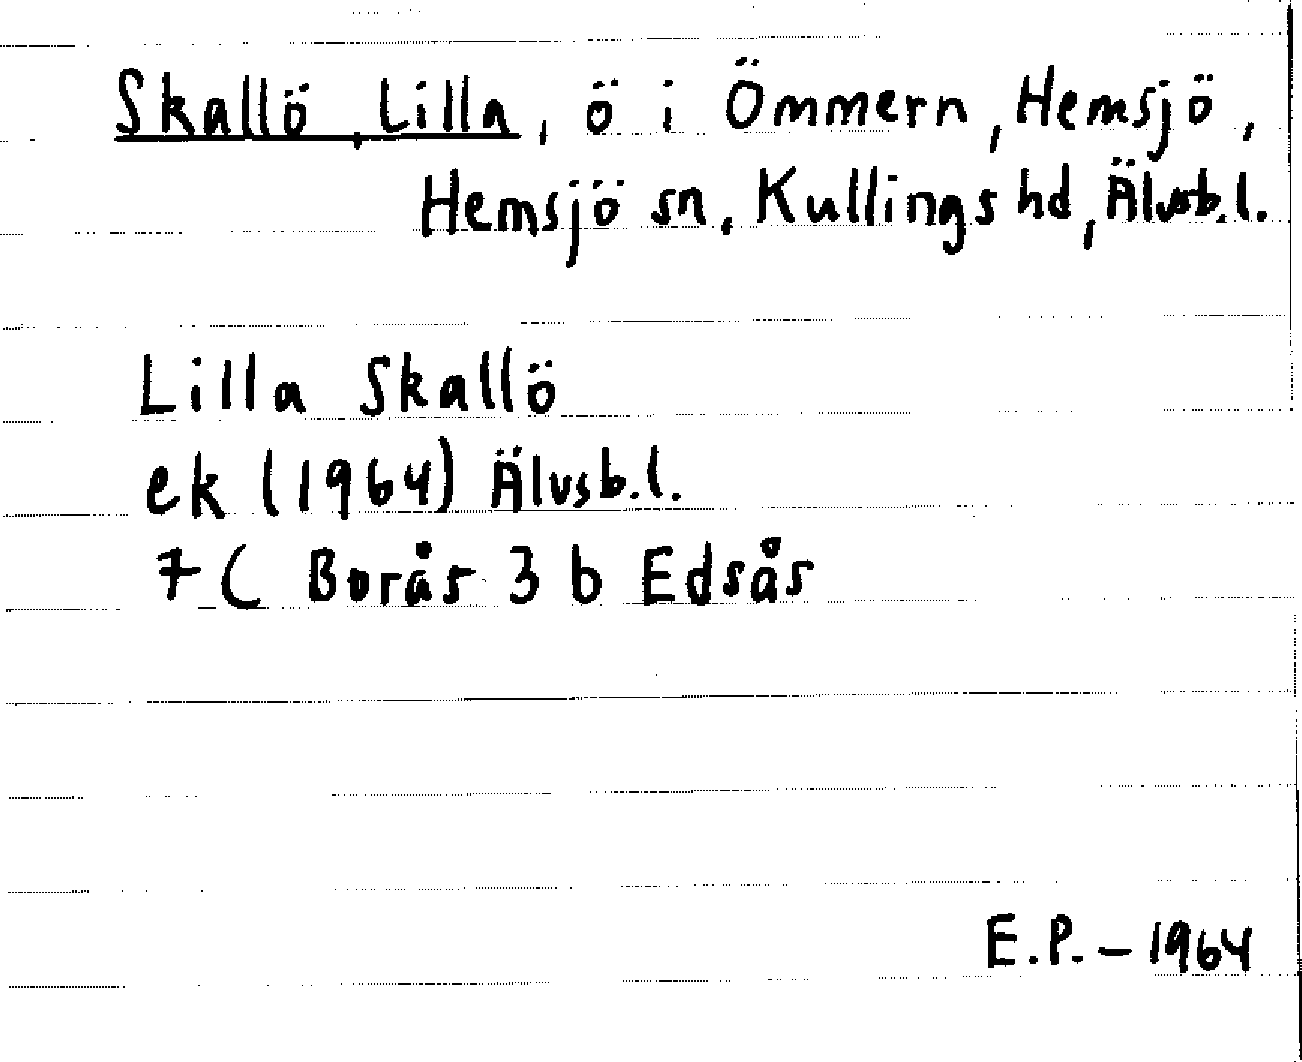 Skallö, Lilla, ö i Ömmern, Hemsjö,
Hemsjö sn, Kullings hd, Älvsb.l.
Lilla Skallö
ek (1964) Älvsb.l.
7C Borås 3 b Edsås
E.P. - 1964